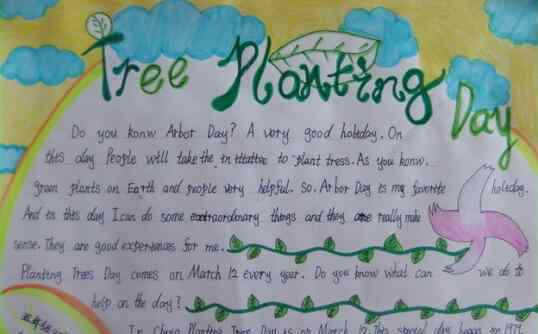 Tree Planting Day
Do you konw Arbor Day? A very good holiday. On
this day People will take the initiative to plant tress. As you konw.
green plants on Earth and people very helpful. So. Arbor Day is my favorite holiday.
And in this day I can do some extraordinary things and they are really make
sense. They are good experiences for me.
Planting Trees Day comes on March 12 every year. Do you know what can we do to
help on the day?
In China Planting Tree Day is on March 12. This day began in 1979